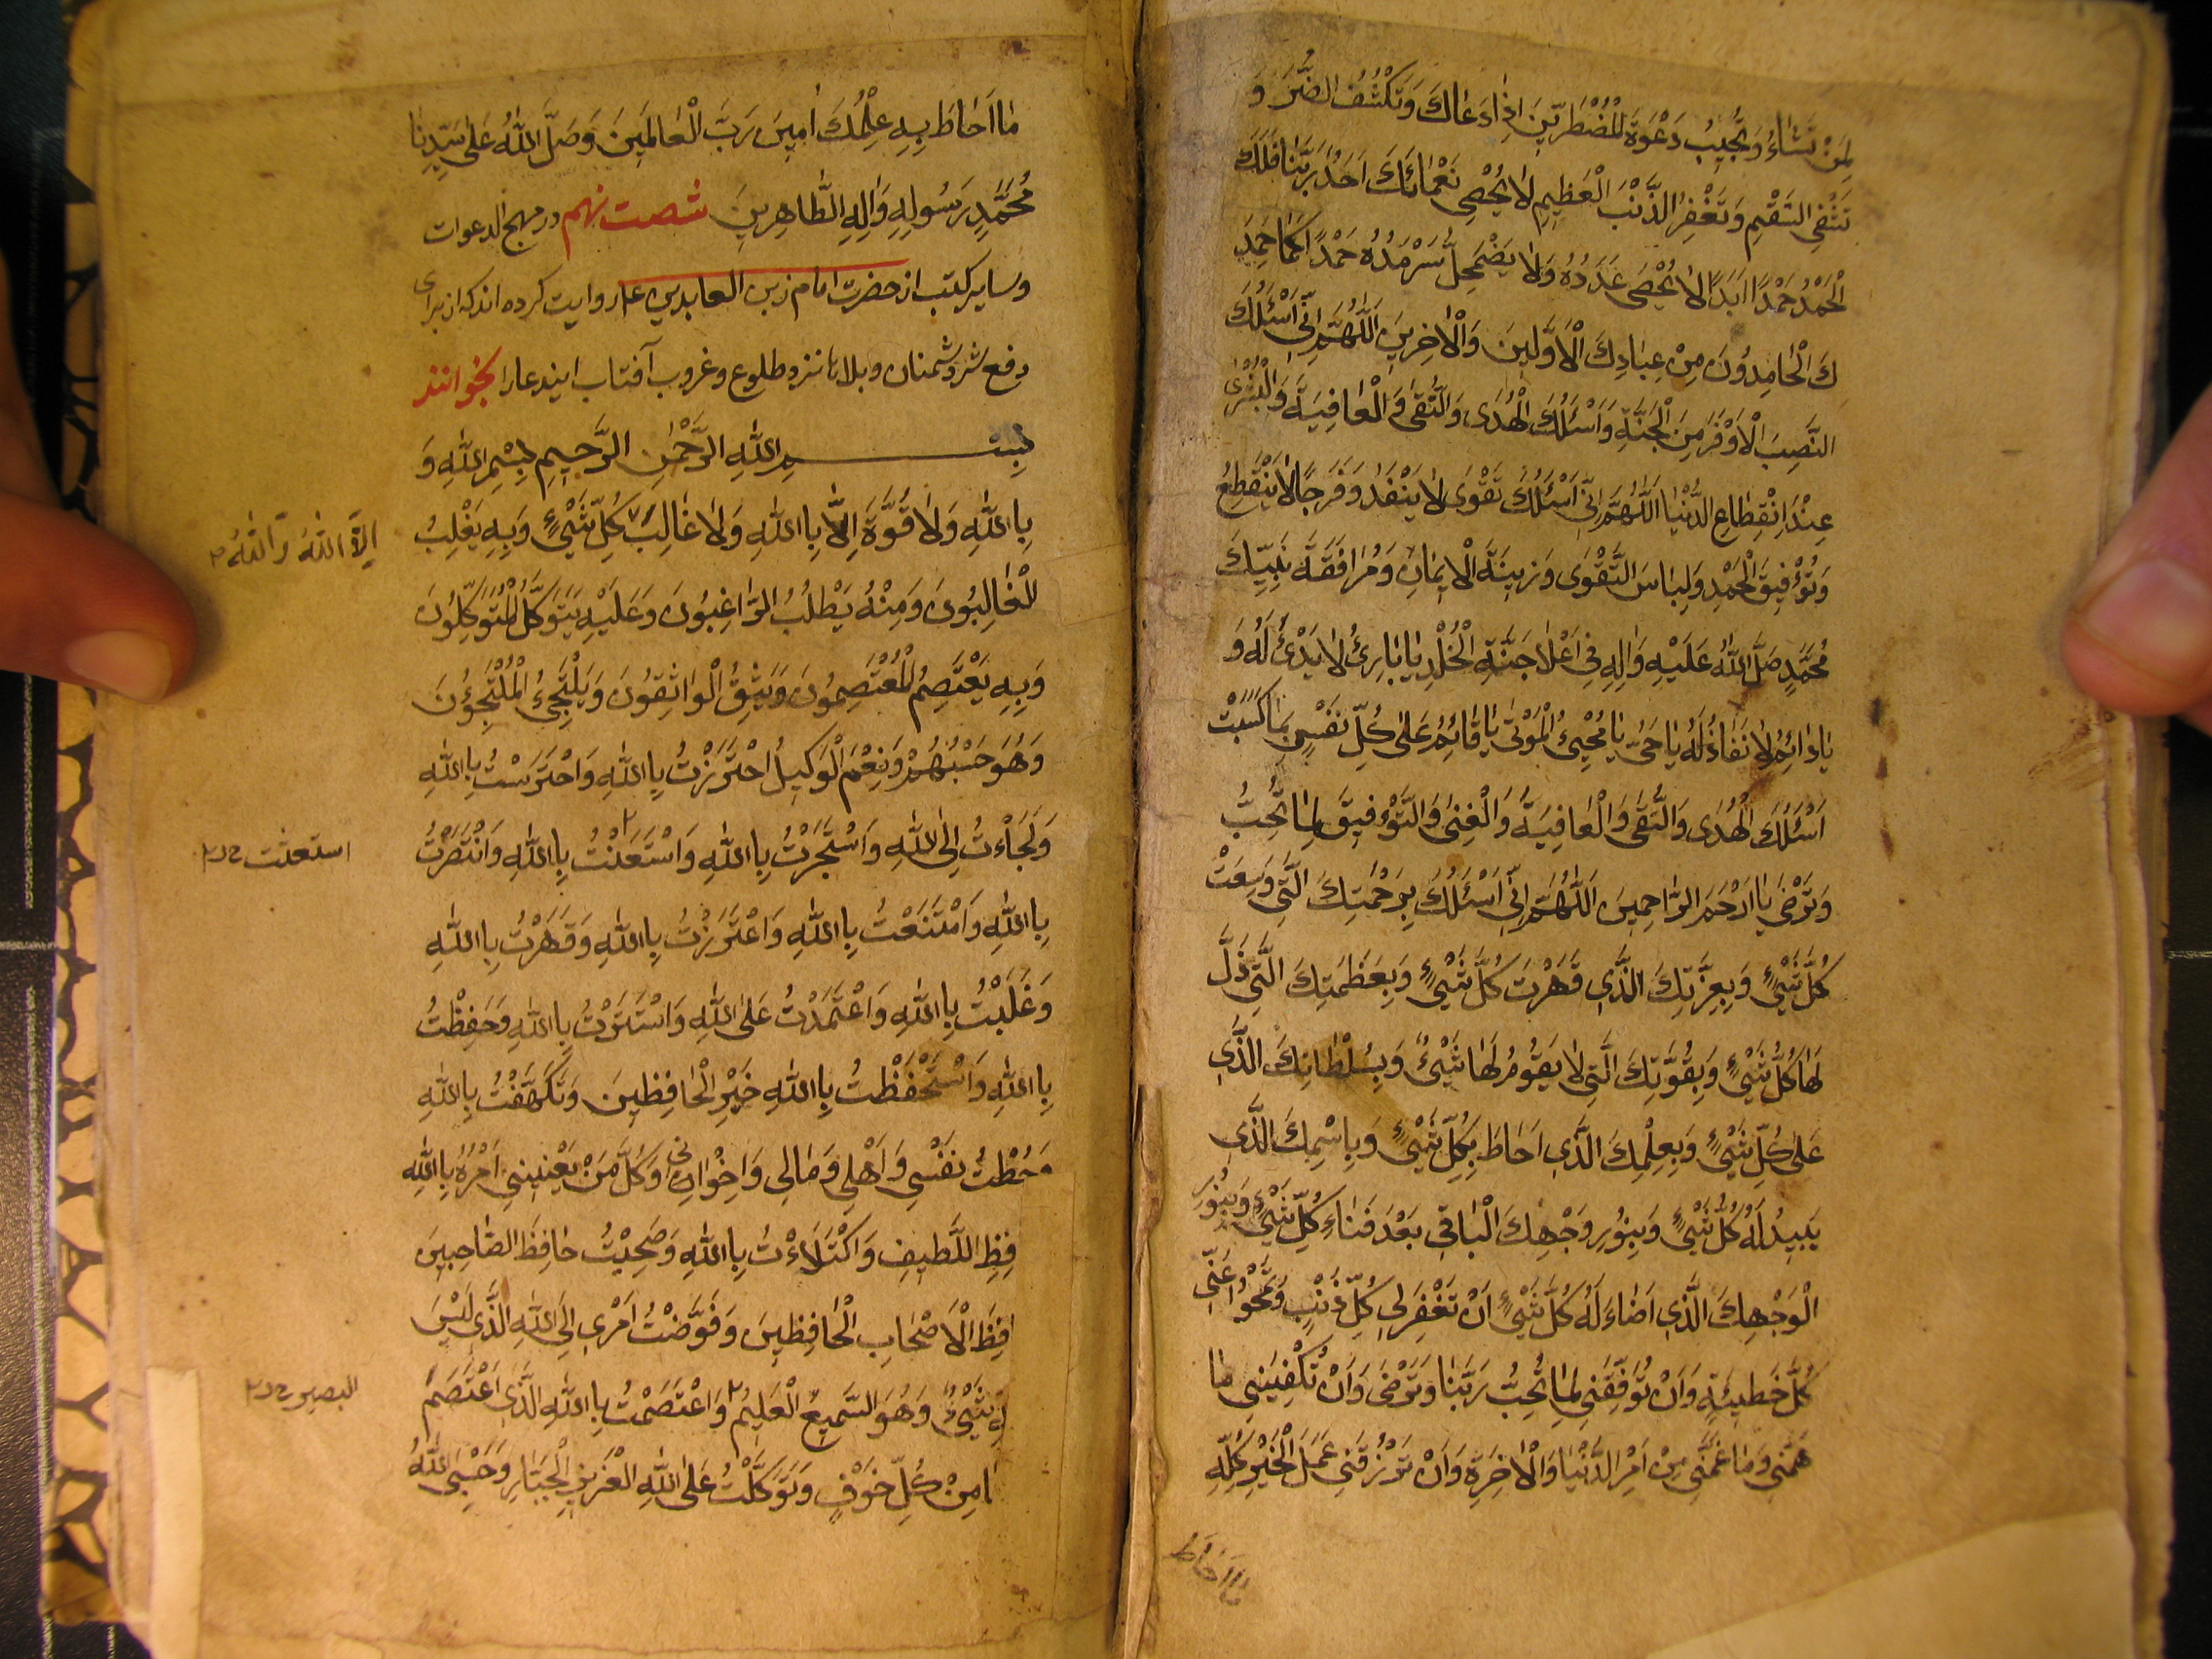 لِمَنْ تَشَاءُ وَتُجِيبُ دَعْوَةَ الْمُضْطَرِّينَ اِذَا دَعَاكَ وَتَكْشُفُ الضُّرَّ وَ
تَشْفِى السَّقِيمَ وَتَغْفِرُ الذَّنْبَ الْعَظِيمِ لَا يُحْصِى نَعْمَائَكَ اَحَدٌ رَبَّنَا فَلَكَ
الْحَمْدُ حَمْدًا اَبَدًا لَا يُحْصَى عَدَدُهُ وَلَا يَضْمَحِلُّ سَرْمَدُهُ حَمْدًا كَمَا حَمِدَ
كَ الْحَامِدُونَ مِنْ عِبَادِكَ الْاَوَّلِينَ وَالْاٰخِرِينَ اَللّٰهُمَّ اِنِّى اَسْئَلُكَ
النَّصِيبَ الْاَوْفَرَ مِنَ الْجَنَّةِ وَاَسْئَلُكَ الْهُدَى وَالتُّقَى وَالْعَافِيَةَ وَالْبُشْرٰى
عِنْدَ اِنْقِطَاعِ الدُّنْيَا اَللّٰهُمَّ اِنِّى اَسْئَلُكَ تَقْوَى لَا يَنْفَدُ وَفَرَجًا لَا يَنْقَطِعُ
وَتَوْفِيقَ الْحَمْدِ وَلِبَاسَ التَّقْوَى وَزِينَةَ الْاِيمَانِ وَمُرَافَقَةَ نَبِيِّكَ
مُحَمَّدٍ صَلَّى اللّٰهُ عَلَيْهِ وَاٰلِهِ فِى اَعْلَا جَنَّةِ الْخُلْدِ يَا بَارِئُ لَا بَدْئَ لَهُ وَ
يَا دَائِمُ لَا نَفَادَ لَهُ يَا حَىُّ يَا مُحْيِىَ الْمَوْتٰى يَا قَائِمُ عَلٰى كُلِّ نَفْسٍ بِمَا كَسَبَتْ
اَسْئَلُكَ الْهُدٰى وَالتُّقٰى وَالْعَافِيَةَ وَالْغِنٰى وَالتَّوْفِيقَ لِمَا تُحِبُّ
وَتَرْضٰى يَا اَرْحَمَ الرَّاحِمِينَ اَللّٰهُمَّ اِنِّى اَسْئَلُكَ بِرَحْمَتِكَ الَّتِى وَسِعَتْ
كُلَّ شَىْءٍ وَبِعِزَّتِكَ الَّذِى قَهَرْتَ كُلَّ شَىْءٍ وَبِعَظَمَتِكَ الَّتِى ذَلَّ
لَهَا كُلُّ شَىْءٍ وَبِقُوَّتِكَ الَّتِى لَا يَقُومُ لَهَا شَىْءٌ وَبِسُلْطَانِكَ الَّذِى
عَلٰى كُلِّ شَىْءٍ وَبِعِلْمِكَ الَّذِى اَحَاطَ بِكُلِّ شَىْءٍ وَبِاسْمِكَ الَّذِى
يَبِيدُ لَهُ كُلُّ شَىْءٍ وَبِنُورِ وَجْهِكَ الْبَاقِى بَعْدَ فَنَاءِ كُلِّ شَىْءٍ وَبِنُورِ
الْوَجْهِكَ الَّذِى اَضَاءَ لَهُ كُلُّ شَىْءٍ اَنْ تَغْفِرَ لِى كُلَّ ذَنْبٍ وَتَمْحُوا عَنِّى
كُلَّ خَطِيئَةٍ وَاَنْ تُوَفِّقَنِى لِمَا تُحِبُّ رَبَّنَا وَتَرْضٰى وَاَنْ تَكْفِيَنِى مَا
هَمَّنِى وَمَا غَمَّنِى مِنْ اَمْرِ الدُّنْيَا وَالْاٰخِرَةِ وَاَنْ تَرْزُقَنِى عَمَلَ الْخَيْرِ كُلِّهِ
مَا اَحَاطَ
مَا اَحَاطَ بِهِ عِلْمُكَ اٰمِينَ رَبَّ الْعَالَمِينَ وَصَلَّى اللّٰهُ عَلٰى سَيِّدِنَا
مُحَمَّدٍ رَسُولِهِ وَاٰلِهِ الطَّاهِرِينَ شصت نهم در مهج الدعوات
وساير كتب از حضرت امام زين العابدين ع روايت كرده اند كه از براى
دفع شر دشمنان و بلاها نزد طلوع و غروب آفتاب ايندعا را بخوانند
بِسْمِ اللّٰهِ الرَّحْمٰنِ الرَّحِيمِ بِسْمِ اللّٰهِ وَ
بِاللّٰهِ وَلَا قُوَّةَ اِلَّا بِاللّٰهِ وَلَا غَالِبَ كُلِّ شَىْءٍ وَبِهِ يَغْلِبُ
اِلَّا اللّٰهُ وَاللّٰهُ
الْغَالِبُونَ وَمِنْهُ يَطْلُبُ الرَّاغِبُونَ وَعَلَيْهِ يَتَوَكَّلُ الْمُتَوَكِّلُونَ
وَبِهِ يَعْتَصِمُ الْمُعْتَصِمُونَ وَيَثِقُ الْوَاثِقُونَ وَيَلْتَجِئُ الْمُلْتَجِؤُنَ
وَهُوَ حَسْبُهُمْ وَنِعْمَ الْوَكِيلُ احْتَرَزْتُ بِاللّٰهِ وَاحْتَرَسْتُ بِاللّٰهِ
وَلَجَاْتُ اِلَى اللّٰهِ وَاسْتَجَرْتُ بِاللّٰهِ وَاسْتَعَنْتُ بِاللّٰهِ وَانْتَصَرْتُ
استعثت
بِاللّٰهِ وَامْتَنَعْتُ بِاللّٰهِ وَاعْتَزَزْتُ بِاللّٰهِ وَقَهَرْتُ بِاللّٰهِ
وَغَلَبْتُ بِاللّٰهِ وَاعْتَمَدْتُ عَلَى اللّٰهِ وَاسْتَتَرْتُ بِاللّٰهِ وَحَفِظْتُ
بِاللّٰهِ وَاسْتَحْفَظْتُ بِاللّٰهِ خَيْرِ الْحَافِظِينَ وَتَكَهَّفْتُ بِاللّٰهِ
وَحُطْتُ نَفْسِى وَاَهْلِى وَمَالِى وَاِخْوَانِى وَكُلَّ مَنْ يَعْنِينِى اَمْرُهُ بِاللّٰهِ
فِظِ اللَّطِيفِ وَاكْتَلَاْتُ بِاللّٰهِ وَصَحِبْتُ حَافِظَ الصَّاحِبِينَ
افِظَ الْاَصْحَابِ الْحَافِظِينَ وَفَوَّضْتُ اَمْرِى اِلَى اللّٰهِ الَّذِى لَيْسَ
شَىْءٌ وَهُوَ السَّمِيعُ الْعَلِيمُ وَاعْتَصَمْتُ بِاللّٰهِ الَّذِى اعْتَصَمَ
البصير
مِنْ كُلِّ خَوْفٍ وَتَوَكَّلْتُ عَلَى اللّٰهِ الْعَزِيزِ الْجَبَّارِ وَحَسْبِىَ اللّٰهُ